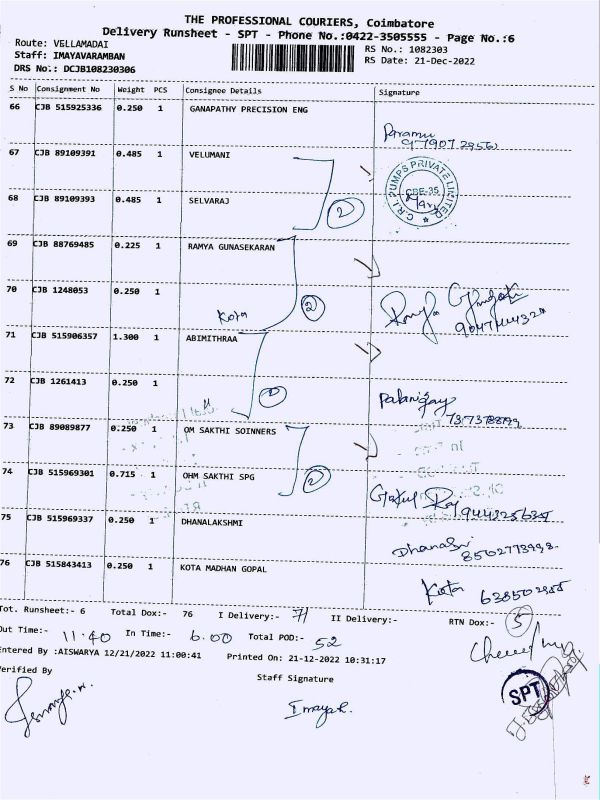 THE PROFESSIONAL COURIERS, Coimbatore
Delivery Runsheet - SPT - Phone No.:0422-3505555 - Page No.:6
Route: VELLAMADAI
RS No.: 1082303
Staff: IMAYAVARAMBAN
RS Date: 21-Dec-2022
DRS No.: DCJB108230306
S No Consignment No Weight PCS Consignee Details Signature
66 CJB 515925336 0.250 1 GANAPATHY PRECISION ENG
Paramu
67 CJB 89109391 0.485 1 VELUMANI
C.R.I. PUMPS PRIVATE LIMITED
CBE-35
68 CJB 89109393 0.485 1 SELVARAJ
2
69 CJB 88769485 0.225 1 RAMYA GUNASEKARAN
70 CJB 1248053 0.250 1
Kota
2
71 CJB 515906357 1.300 1 ABIMITHRAA
72 CJB 1261413 0.250 1
73 CJB 89089877 0.250 1 OM SAKTHI SOINNERS
74 CJB 515969301 0.715 1 OHM SAKTHI SPG
2
75 CJB 515969337 0.250 1 DHANALAKSHMI
76 CJB 515843413 0.250 1 KOTA MADHAN GOPAL
Kota
Tot. Runsheet:- 6 Total Dox:- 76 I Delivery:- 71 II Delivery:- RTN Dox:- 5
Out Time:- 11.40 In Time:- 6.00 Total POD:- 52
Entered By :AISWARYA 12/21/2022 11:00:41 Printed On: 21-12-2022 10:31:17
Verified By
Staff Signature
SPT